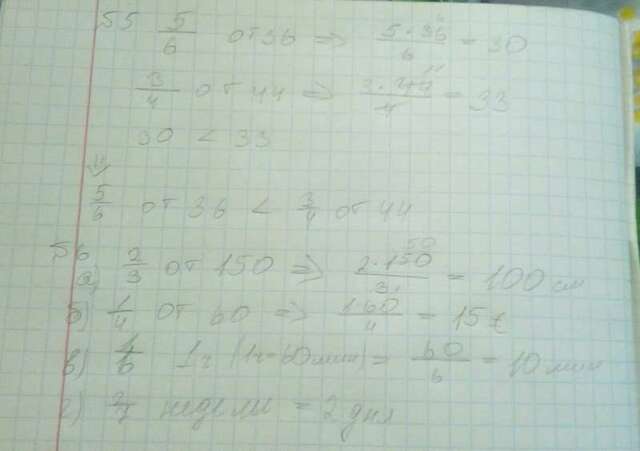 55 5/6 от 36 => 5·36/6 = 30
3/4 от 44 => 3·44/4 = 33
30 < 33
5/6 от 36 < 3/4 от 44
56
а) 2/3 от 150 => 2·150/3 = 100 см
б) 1/4 от 60 => 1·60/4 = 15
в) 1/6 1ч (1ч=60 мин) = 60/6 = 10 мин
г) 2/7 недели = 2 дня